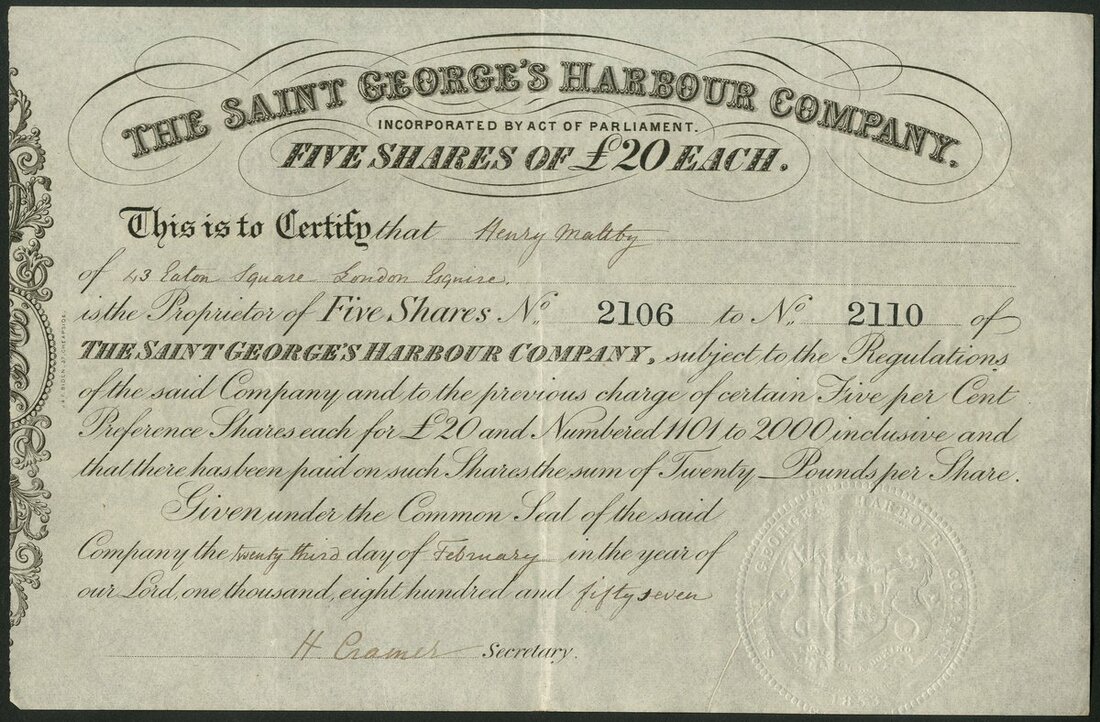 THE SAINT GEORGE'S HARBOUR COMPANY.
INCORPORATED BY ACT OF PARLIAMENT.
FIVE SHARES OF £20 EACH.
This is to Certify that Henry Maltby
of 43 Eaton Square London Esquire.
is the Proprietor of Five Shares No. 2106 to No. 2110 of
THE SAINT GEORGE'S HARBOUR COMPANY, subject to the Regulations
of the said Company and to the previous charge of certain Five per Cent
Preference Shares each for £20 and Numbered 1101 to 2000 inclusive and
that there has been paid on such Shares the sum of Twenty Pounds per Share.
Given under the Common Seal of the said
Company the twenty third day of February in the year of
our Lord, one thousand, eight hundred and fifty seven
H Cramer Secretary.
SAINT GEORGE'S HARBOUR COMPANY